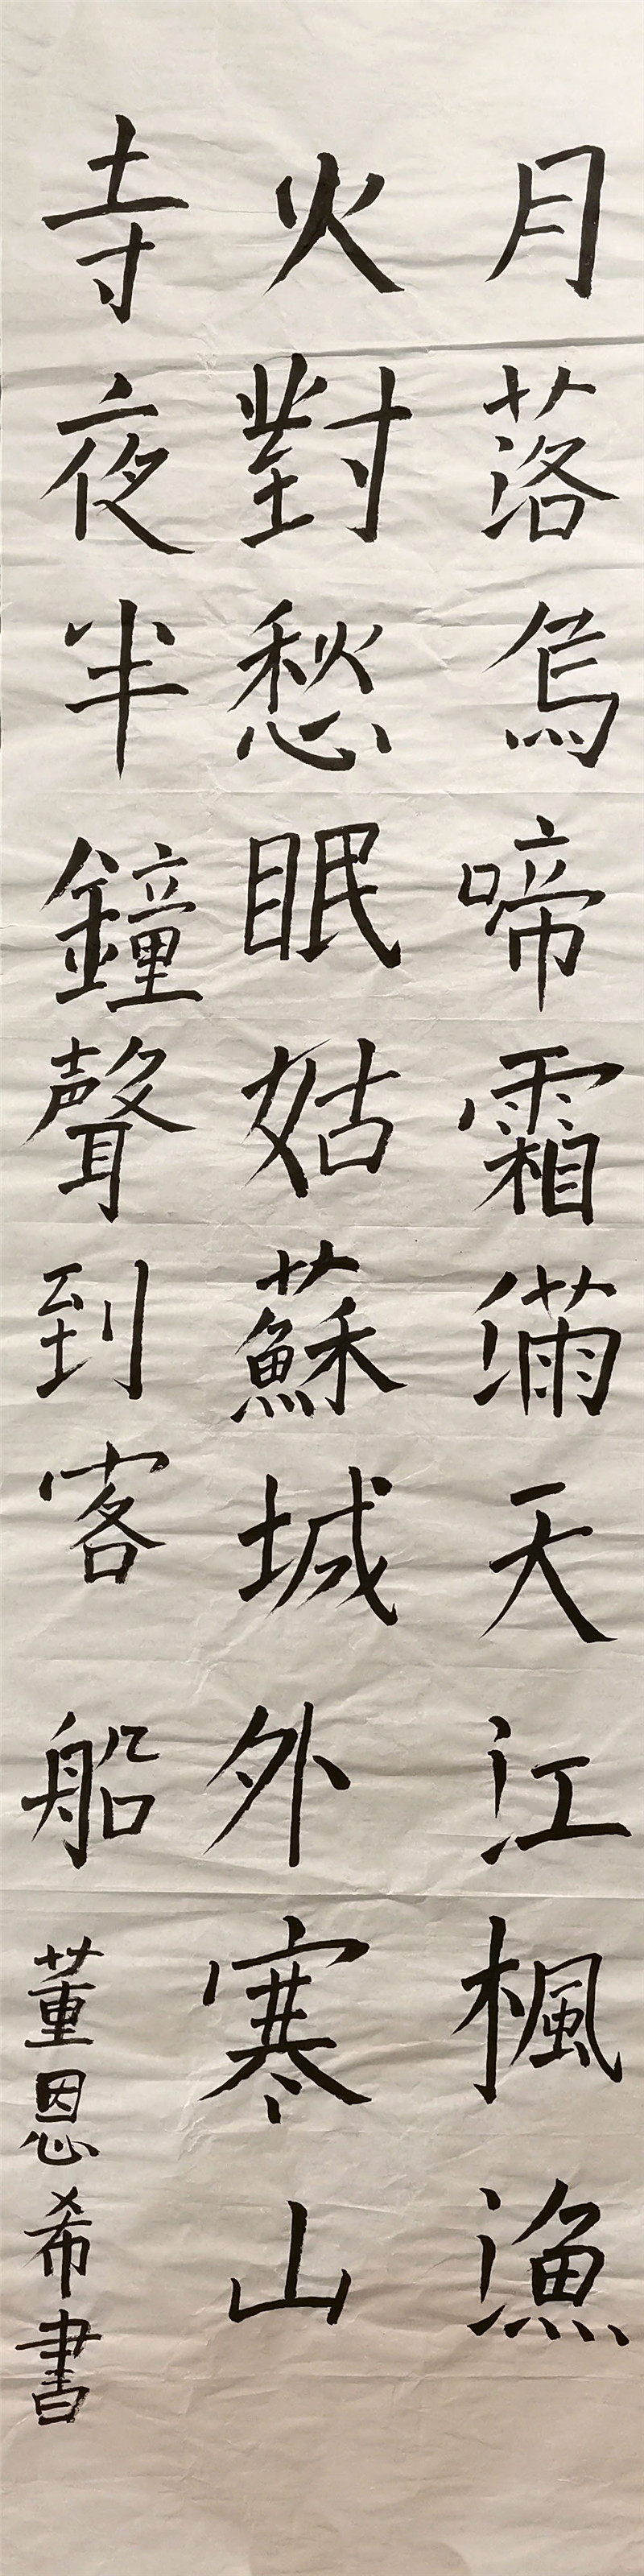 月落烏啼霜滿天江楓漁
火對愁眠姑蘇城外寒山
寺夜半鐘聲到客船
董恩希書